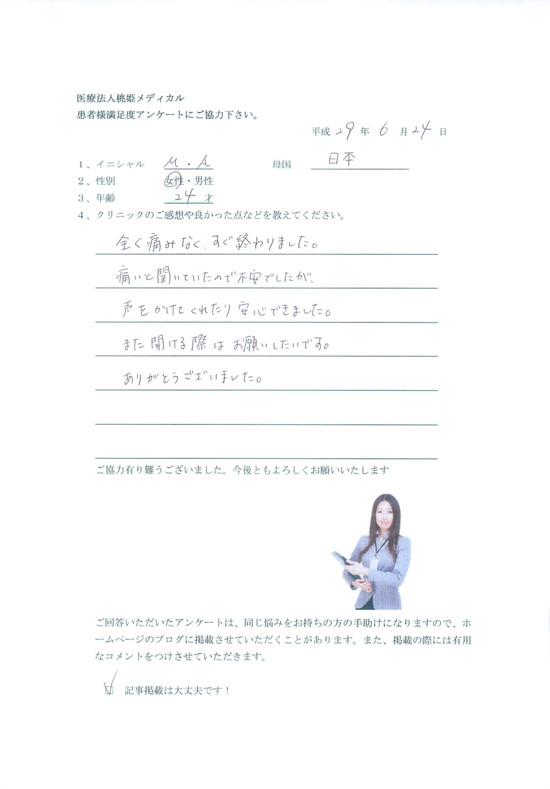 医療法人桃姫メディカル
患者様満足度アンケートにご協力下さい。
平成 29 年 6 月 24 日
1、イニシャル M・A 母国 日本
2、性別 女性・男性
3、年齢 24 才
4、クリニックのご感想や良かった点などを教えてください。
全く痛みなく、すぐ終わりました。
痛いと聞いていたので不安でしたが、
声をかけてくれたり安心できました。
また開ける際はお願いしたいです。
ありがとうございました。
ご協力有り難うございました。今後ともよろしくお願いいたします
ご回答いただいたアンケートは、同じ悩みをお持ちの方の手助けになりますので、ホ
ームページのブログに掲載させていただくことがあります。また、掲載の際には有用
なコメントをつけさせていただきます。
記事掲載は大丈夫です！